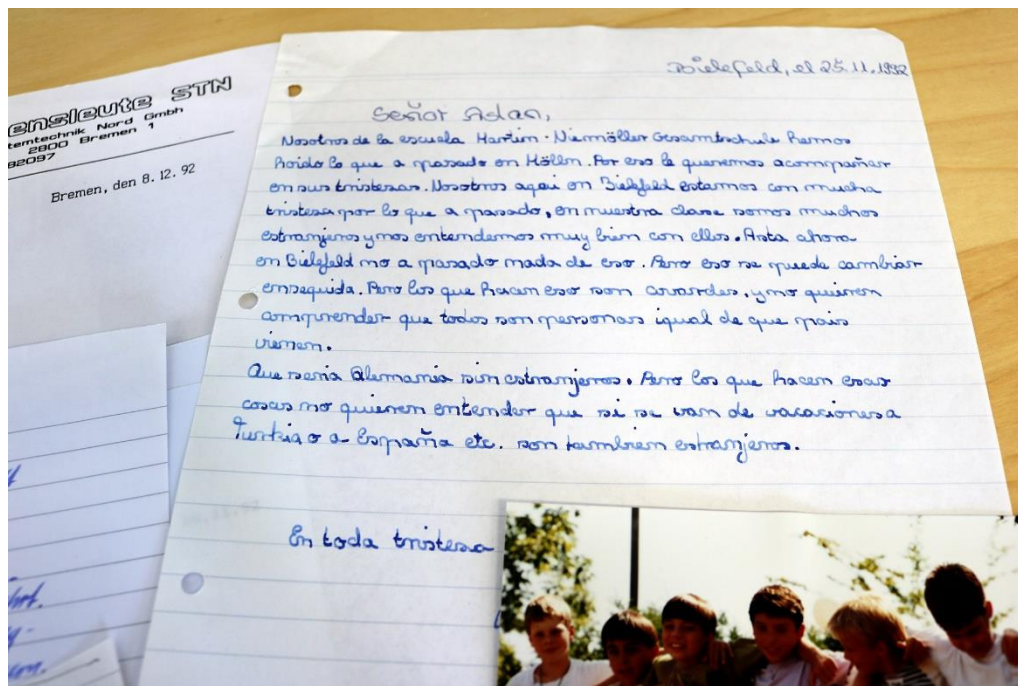 ensleute STN
temtechnik Nord Gmbh
2800 Bremen 1
82097
Bremen, den 8. 12. 92
Bielefeld, el 25.11.1992
Señor Aslan,
Nosotros de la escuela Martin-Niemöller Gesamtschule hemos
hoido lo que a pasado en Mölln. Por eso le queremos acompañar
en sus tristesas. Nosotros aqui en Bielefeld estamos con mucha
tristesa por lo que a pasado, en nuestra clase somos muchos
estranjeros y nos entendemos muy bien con ellos. Asta ahora
en Bielefeld no a pasado nada de eso. Pero eso se puede cambiar
enseguida. Pero los que hacen eso son covardes, y no quieren
comprender que todos son personas igual de que pais
vienen.
Que seria Alemania sin estranjeros. Pero los que hacen esas
cosas no quieren entender que si se van de vacaciones a
Turkia o a España etc. son tambien estranjeros.
En toda tristesa